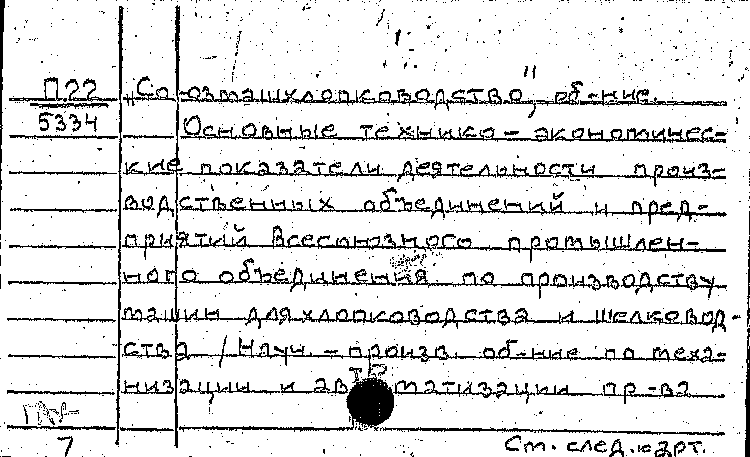 П22 „Союзмашхлопководство", об-ние.
5334 Основные технико-экономичес-
кие показатели деятельности произ-
водственных объединений и пред-
приятий Всесоюзного промышлен-
ного объединения по производству
машин для хлопководства и шелковод-
ства / Науч.-произв. об-ние по меха-
низации и автоматизации пр-ва
7 См. след. карт.